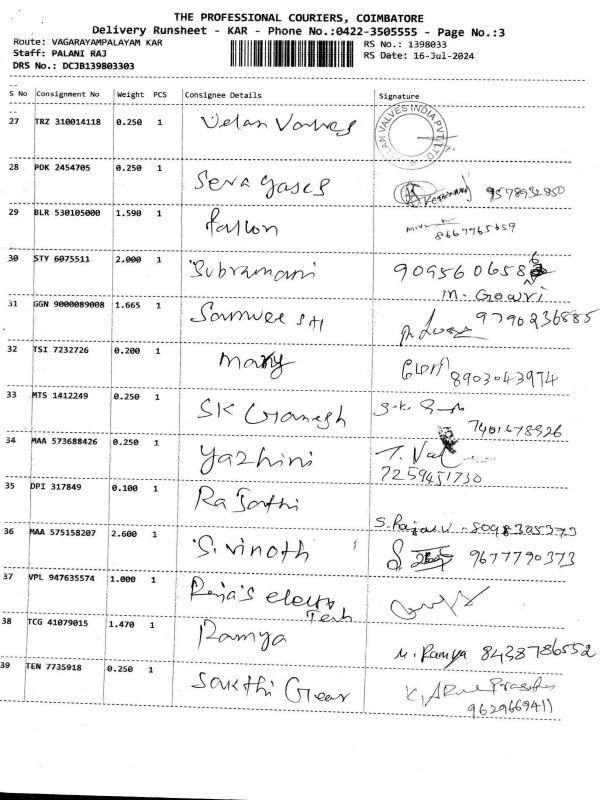 THE PROFESSIONAL COURIERS, COIMBATORE
Delivery Runsheet - KAR - Phone No.:0422-3505555 - Page No.:3
Route: VAGARAYAMPALAYAM KAR RS No.: 1398033
Staff: PALANI RAJ RS Date: 16-Jul-2024
DRS No.: DCJB139803303
S No Consignment No Weight PCS Consignee Details Signature
27 TRZ 310014118 0.250 1 Velan Valves
VALVES INDIA PVT. LTD.
28 PDK 2454705 0.250 1 Sera gases 9578932850
29 BLR 530105000 1.590 1 falcon 8667765659
30 STY 6075511 2.000 1 Subramani 909560658
M. Gowri
31 GGN 9000089008 1.665 1 9790236885
32 TSI 7232726 0.200 1 Mary 8903043974
33 MTS 1412249 0.250 1 SK Ganesh
7401678926
34 MAA 573688426 0.250 1 Yazhini
7259451730
35 DPI 317849 0.100 1 8098305373
36 MAA 575158207 2.600 1 S. Vinoth 9677790373
37 VPL 947635574 1.000 1 Raja's electro
Tech
38 TCG 41079015 1.470 1 Ramya M. Ramya 8438786552
39 TEN 7735918 0.250 1 Sakthi Gear
9629669411